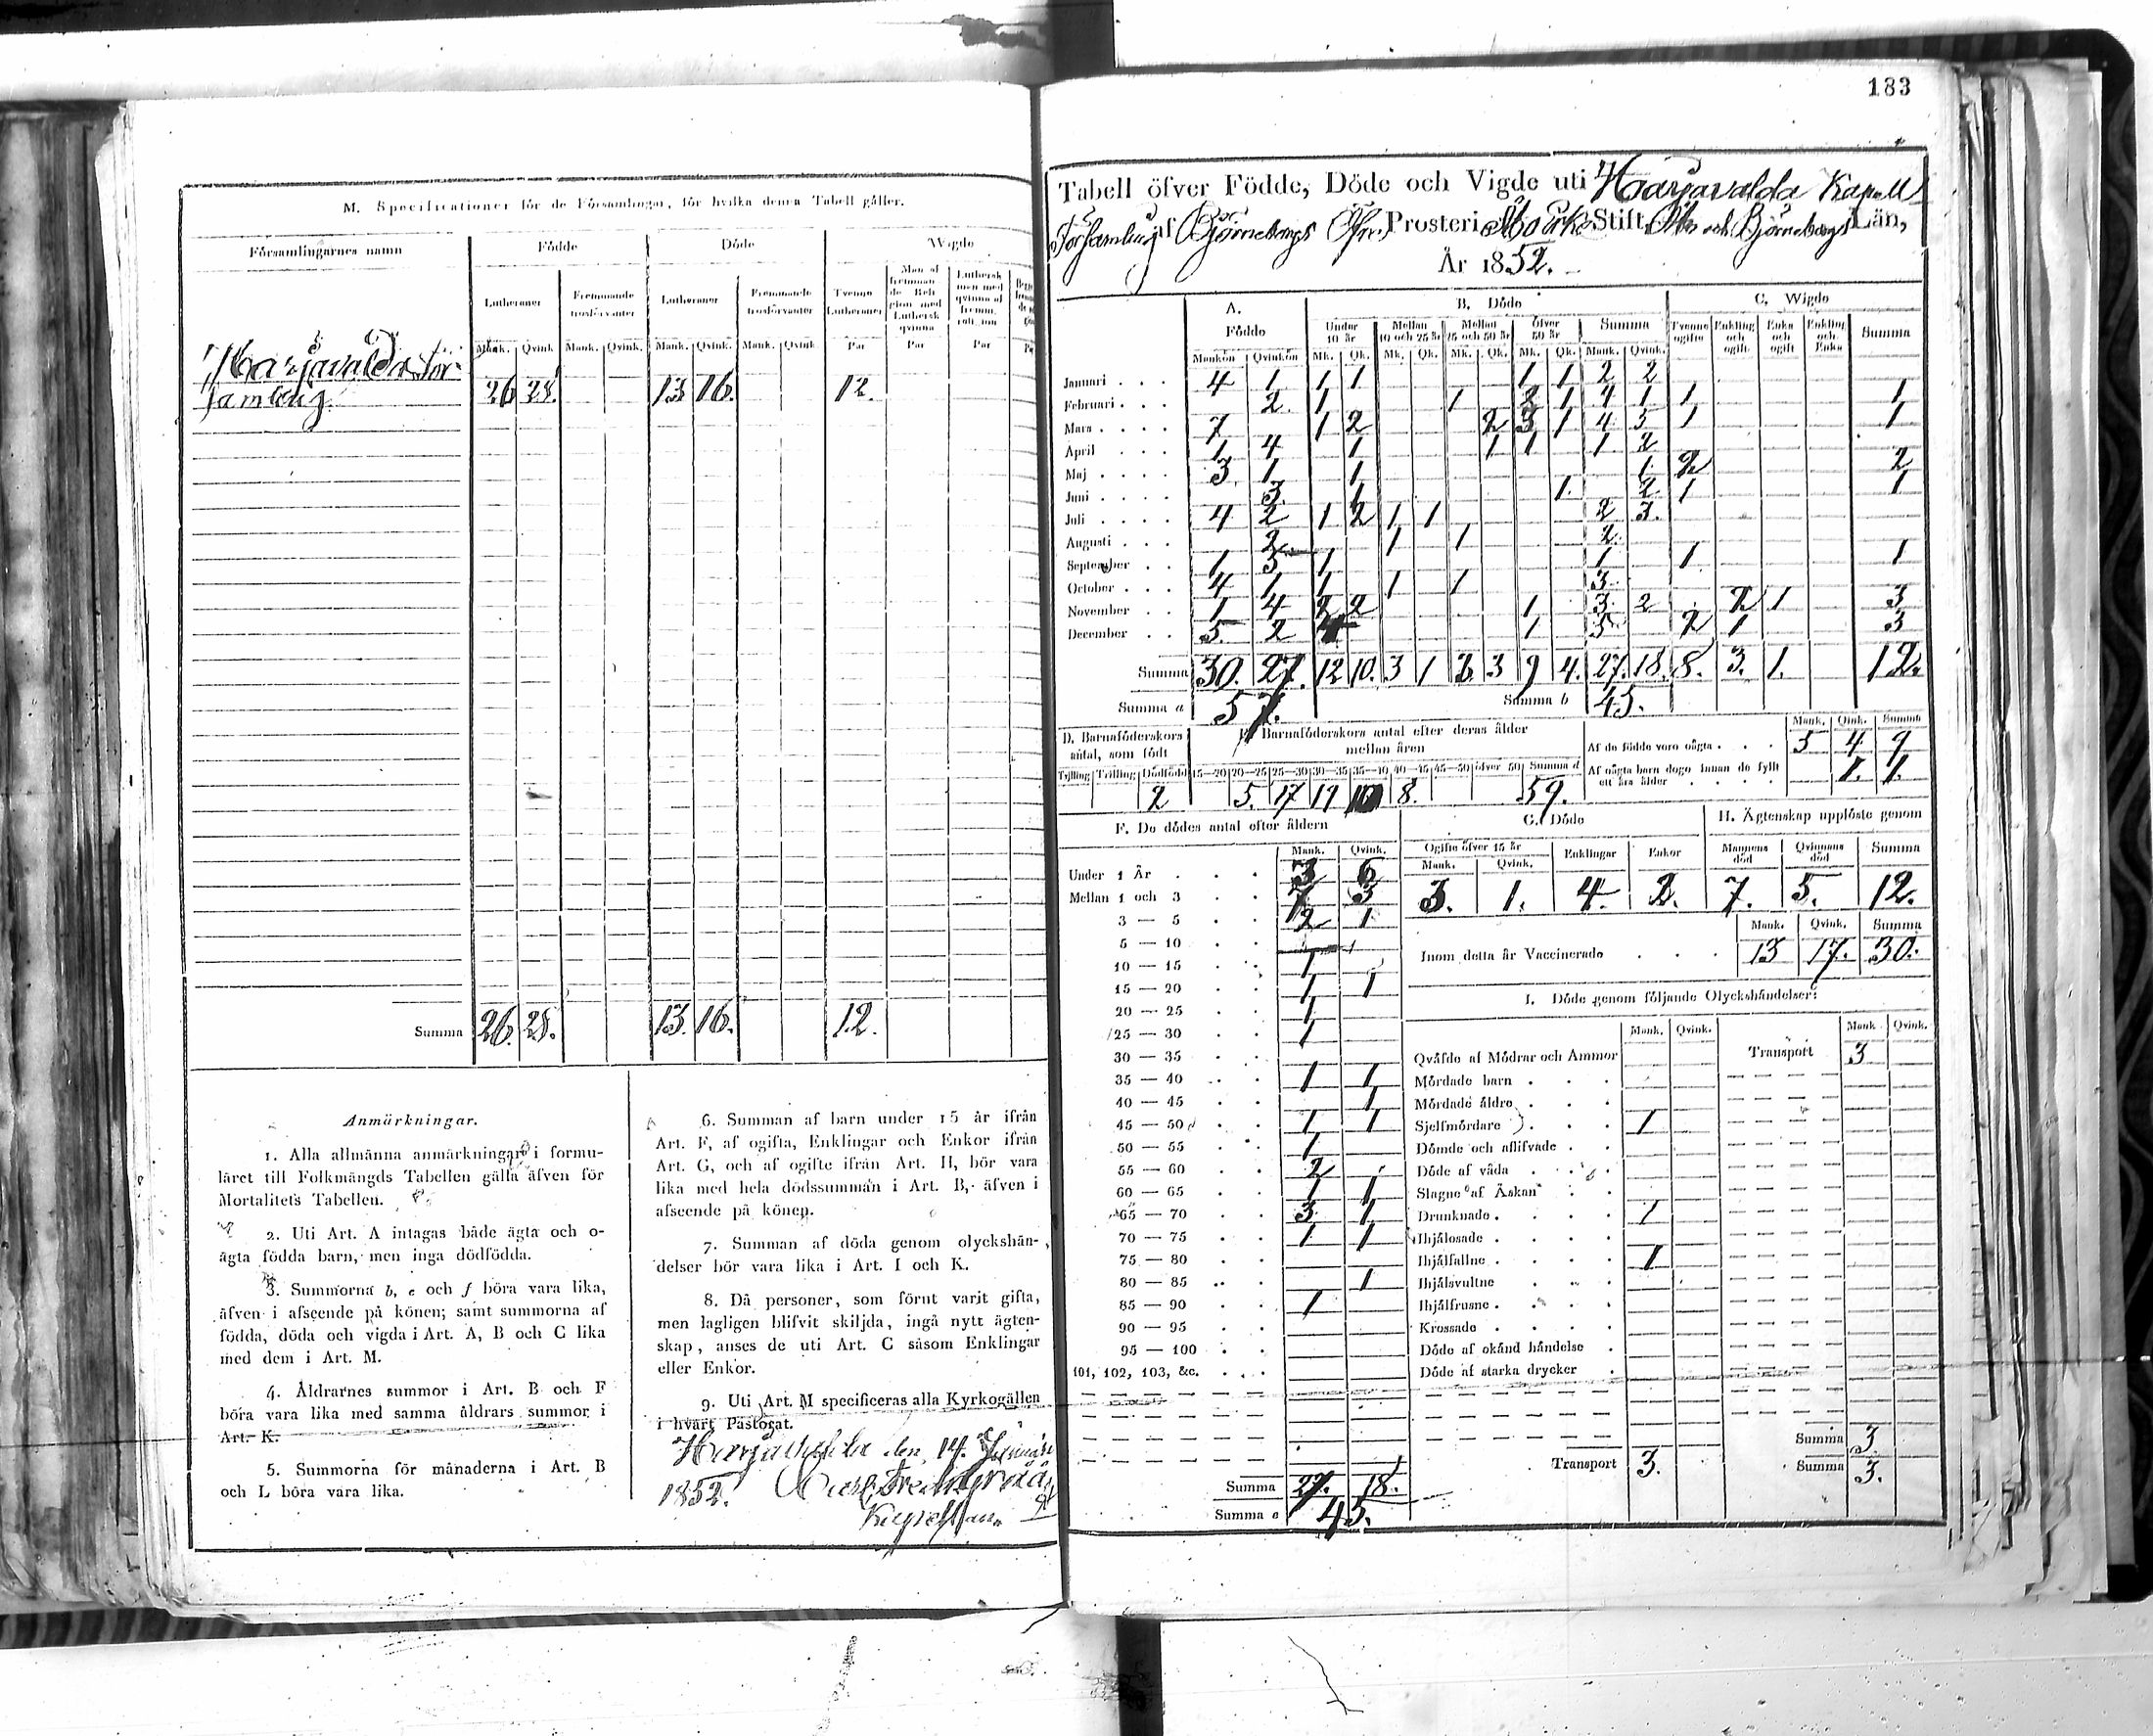 M. Specificationer för de Församlingar, för hvilka denna Tabell gäller.
Församlingarnes namn Födde Döde Wigde
Lutheraner Fremmande trosförvanter Lutheraner Fremmande trosförvanter Tvenne Lutheraner Man af fremmande Religion med Luthersk qvinna
Mank. Qvink. Mank. Qvink. Mank. Qvink. Mank. Qvink. Par Par Par
Harjavalda För-
samling 26 25. 13 16. 12.
Summa 26. 25. 13. 16. 12.
Anmärkningar.
1. Alla allmänna anmärkningar i formu-
läret till Folkmängds Tabellen gälla äfven för
Mortalitets Tabellen.
2. Uti Art. A intagas både ägta och o-
ägta födda barn, men inga dödfödda.
3. Summorna b, e och f böra vara lika,
äfven i afseende på könen; samt summorna af
födda, döda och vigda i Art. A, B och C lika
med dem i Art. M.
4. Åldrarnes summor i Art. B och F
böra vara lika med samma åldrars summor i
Art. K.
5. Summorna för månaderna i Art. B
och L böra vara lika.
6. Summan af barn under 15 år ifrån
Art. F, af ogifta, Enklingar och Enkor ifrån
Art. G, och af ogifte ifrån Art. H, bör vara
lika med hela dödssumman i Art. B, äfven i
afseende på könen.
7. Summan af döda genom olyckshän-
delser bör vara lika i Art. I och K.
8. Då personer, som förut varit gifta,
men lagligen blifvit skiljda, ingå nytt ägten-
skap, anses de uti Art. C såsom Enklingar
eller Enkor.
9. Uti Art. M specificeras alla Kyrkogällen
i hvart Pastorat.
Harjavalda den 14. Januari
1852.
183
Tabell öfver Födde, Döde och Vigde uti Harjavalda Kapell
Församling af Björneborgs Prosteri Åbo Stift, Åbo och Björneborgs Län,
År 1852.
A. Födde B. Döde C. Wigde
Under 10 år Mellan 10 och 25 år Mellan 25 och 50 år Öfver 50 år Summa Tvenne ogifte Enkling och ogift Enka och ogift Enkling och Enka Summa
Mankön Qvinkön Mk. Qk. Mk. Qk. Mk. Qk. Mk. Qk. Mank. Qvink.
Januari 4 1 1 1 1 1 2 2
Februari 2 1 1 2 1 4 1 1 1
Mars 7 1 2 2 3 1 4 5 1 1
April 1 4 1 1 1 1 2
Maj 3 1 1 1 2 2
Juni 3 1 1 2 1 1
Juli 4 2 1 2 1 1 2 3
Augusti 2 1 1 2
September 1 5 1 1 1 1
October 4 1 1 1 1 3
November 1 4 2 2 1 3 2 2 1 3
December 5 2 4 1 5 2 1 3
Summa 30. 27. 12 10. 3 1 3 3 9 4. 27. 18. 8. 3. 1. 12.
Summa a 57. Summa b 45.
D. Barnaföderskors antal, som födt
E. Barnaföderskors antal efter deras ålder mellan åren
Tvilling Trilling Dödfödd 15—20 20—25 25—30 30—35 35—40 40—45 45—50 öfver 50 Summa d
2 5. 17 19 10 8. 59.
Mank. Qink. Summa
Af de födde voro oägta 5 4 9
Af oägta barn dogo innan de fyllt ett års ålder 1. 1.
F. De dödes antal efter åldern
Mank. Qvink.
Under 1 År 3 6
Mellan 1 och 3 7 3
3 — 5 2 1
5 — 10
10 — 15 1
15 — 20 1 1
20 — 25 1
25 — 30 1
30 — 35
35 — 40 1 1
40 — 45 1
45 — 50 1 1
50 — 55 1
55 — 60 2
60 — 65 1 1
65 — 70 3 1
70 — 75 1 1
75 — 80
80 — 85 1
85 — 90 1
90 — 95
95 — 100
101, 102, 103, &c.
Summa 27. 18.
Summa e 45.
G. Döde
Ogifte öfver 15 år Enklingar Enkor
Mank. Qvink.
3. 1. 4. 2.
H. Ägtenskap upplöste genom
Mannens död Qvinnans död Summa
7. 5. 12.
Mank. Qvink. Summa
Inom detta år Vaccinerade 13 17. 30.
I. Döde genom följande Olyckshändelser:
Mank. Qvink. Mank. Qvink.
Qväfde af Mödrar och Ammor Transport 3
Mördade barn
Mördade äldre
Sjelfmördare 1
Dömde och aflifvade
Döde af våda
Slagne af Åskan
Drunknade 1
Ihjälosade
Ihjälfallne 1
Ihjälsvultne
Ihjälfrusne
Krossade
Döde af okänd händelse
Döde af starka drycker
Summa 3.
Transport 3. Summa 3.